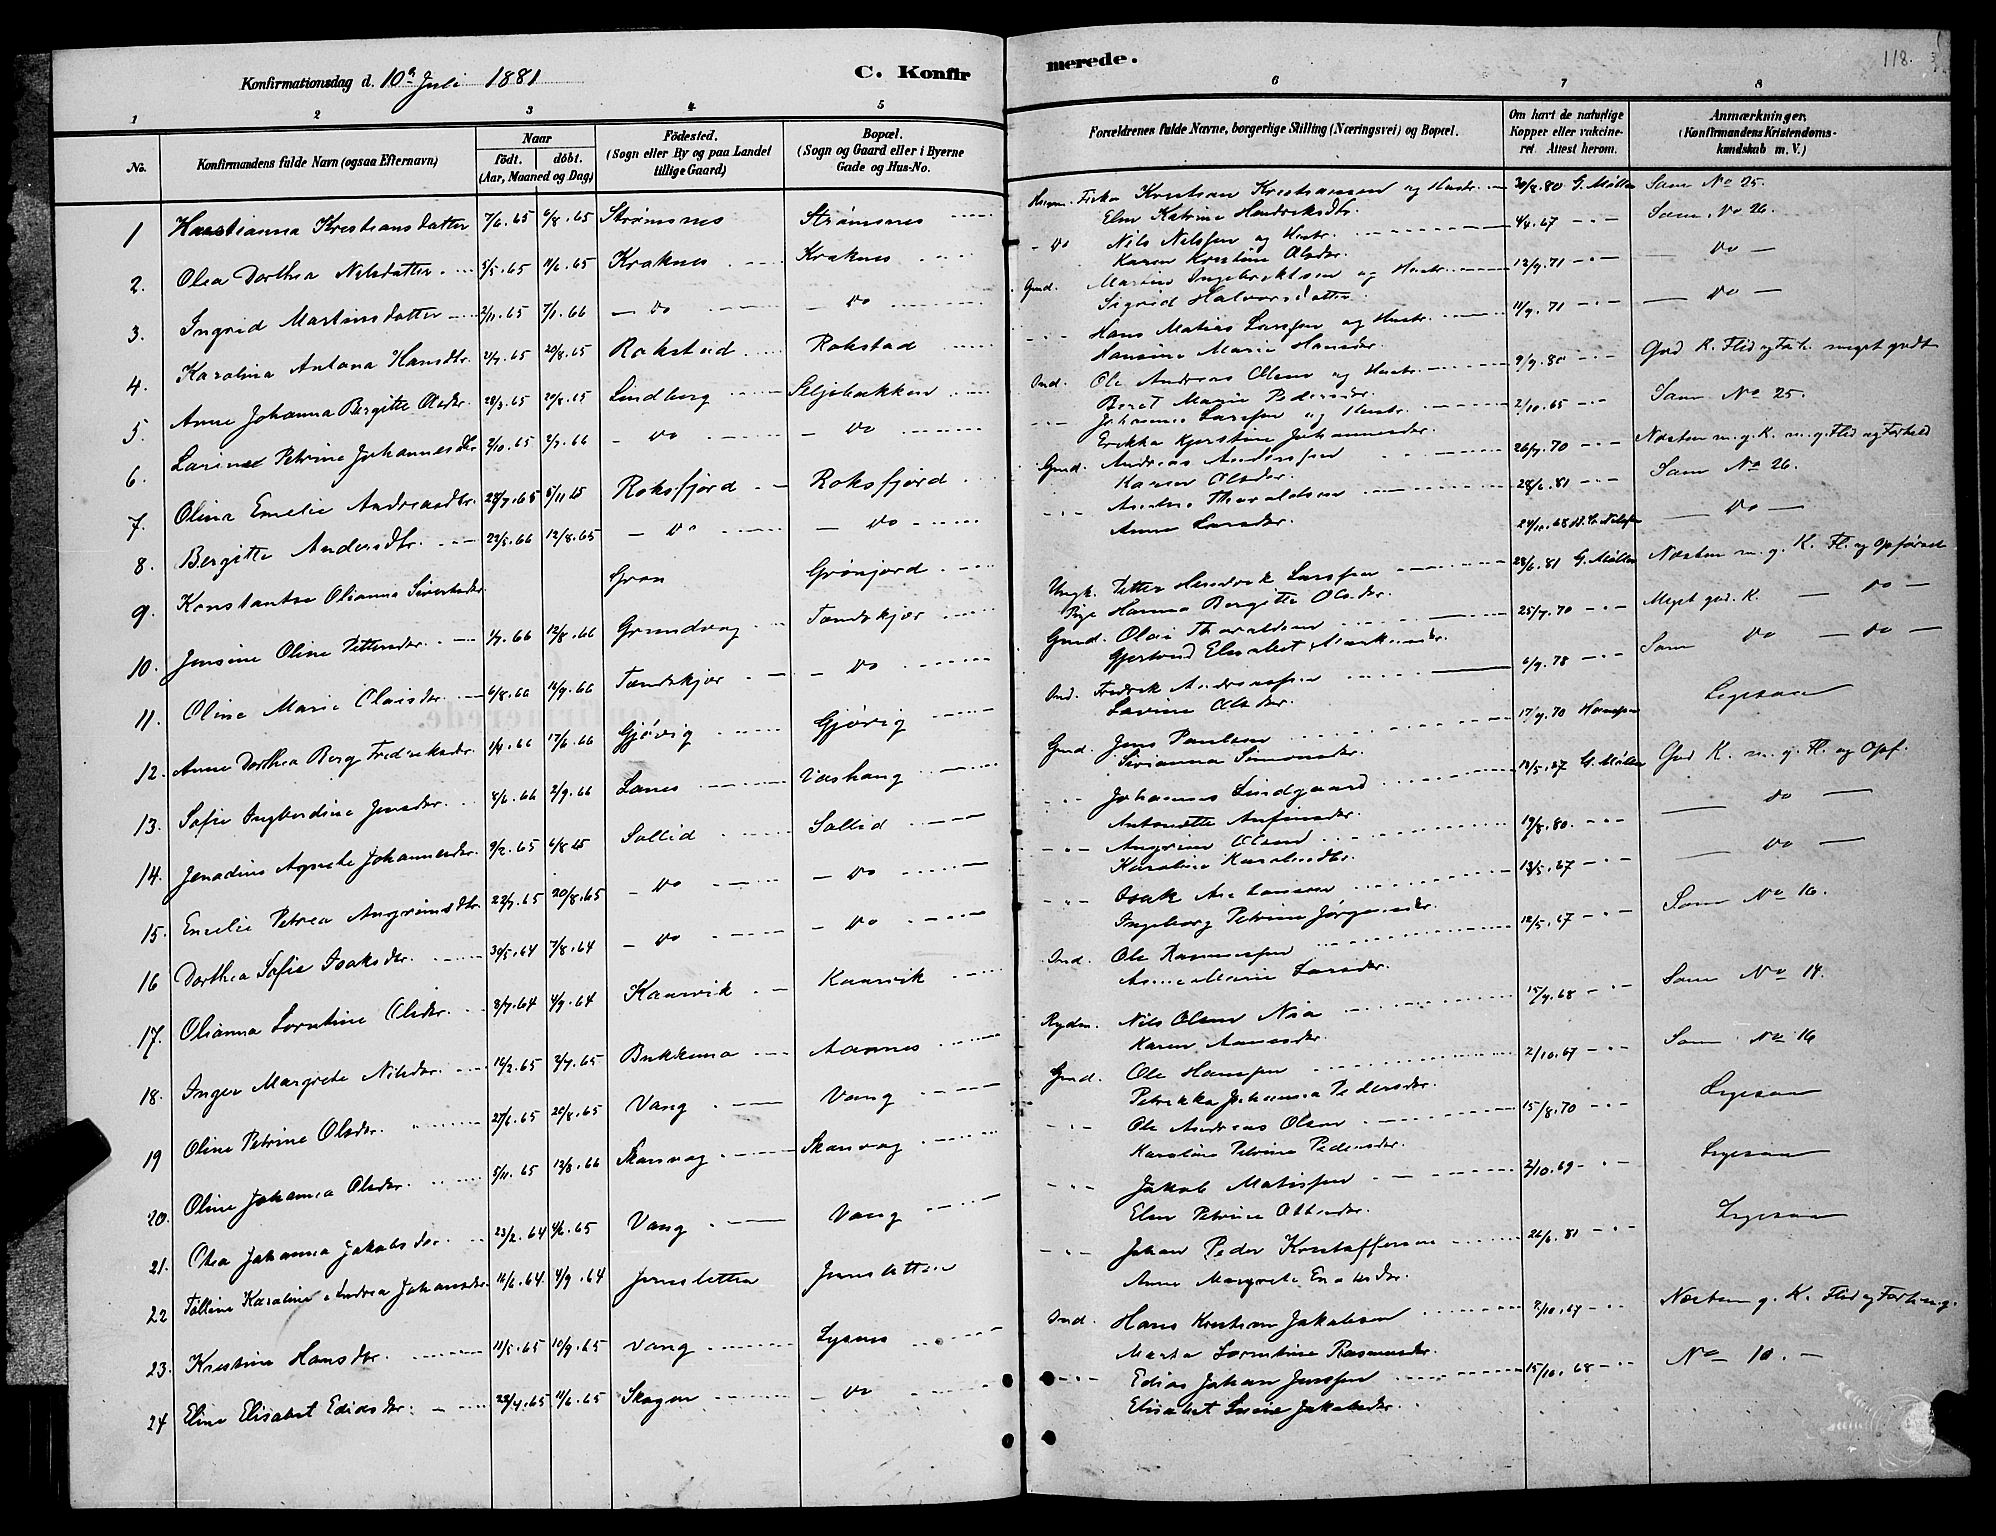 Konfirmationsdag d. 10de Juli 1881
C. Konfirmerede.
118.
1 2 3 4 5 6 7 8
No.
Konfirmandens fulde Navn (ogsaa Efternavn)
Naar
født. døbt.
(Aar, Maaned og Dag)
Fødested.
(Sogn eller By og paa Landet
tillige Gaard)
Bopæl.
(Sogn og Gaard eller i Byerne
Gade og Hus-No.
Forældrenes fulde Navne, borgerlige Stilling (Næringsvei) og Bopæl.
Om havt de naturlige
Kopper eller vaccine-
ret. Attest herom.
Anmærkninger.
(Konfirmandens Kristendoms-
kundskab m. V.)
1 Kristiansdatter 7/6.65 6/8.65 Strømsnes Strømsnes Kristian Kristiansen og Hustr. 30/8.80 G. Møller Som No 25.
Elen Katrine Hendriksdtr.
2. Olea Dorthea Nilsdatter 5/5.65 11/6.65 Kraknes Kraknes Do Nils Nilssen og Hustr. 4/4.67 Som No 26.
Karen Kristine Olsdtr.
3. Ingrid Martinsdatter 2/11.65 7/1.66 Do Do Gmd. Martin Ingebriktsen og Hustr. 12/9.71 Do
Sigrid Halvorsdatter
4. Karolina Antona Hansdtr. 2/7.65 20/8.65 Rokstad Rokstad Hans Matias Larssen og Hustr. 11/9.71 Do
Hansine Marie Hansdtr.
5. Anne Johanna Bergitte Olsdtr. 28/3.65 20/8.65 Lindberg Seljebakken Ind. Ole Andreas Olsen og Hustr. 9/9.80 God K. Flid og Forh. meget godt
Beret Marie Pedersdtr.
6. Petrine Johannesdtr. 2/10.65 2/7.66 Do Do Johannes Larssen og Hustr. 2/10.65 Som No 25.
Erikka Kjerstine Johannesdtr.
7. Olina Emelie Andreasdtr. 28/7.65 5/11.65 Roksfjord Roksfjord Gmd. Andreas Anderssen 26/7.70 Næsten m. g. K. m. g. Flid og Forhold
Karen Olsdtr.
8. Bergitte Andersdtr. 22/5.66 12/8.65 Do Do Anders Thoraldsen 28/6.81 Som No 26.
Anne Larsdtr.
9. Konstantse Olianna Sivertsdtr. Gran Grønjord 24/10.68 Nilssen Do
10. Jensine Oline Pettersdtr. 1/7.66 12/8.66 Grundvag Tandskjær Ungk. Petter Hendrik Larssen 28/6.81 G. Møller Næsten m. g. K. Fl. og Opførsel
Pige Hanna Bergitte Olsdtr.
11. Oline Marie Olaisdtr. 6/8.66 16/9.66 Tandskjær Do Gmd. Olai Thoraldsen 25/7.70 Meget god K. Do
Gjertrud Elisabet
12. Anne Dorthea Berg Fredriksdtr. 1/4.66 17/6.66 Gjøvig Gjøvig Ind. Fredrik Andreassen 6/9.78 Som Do Do
Lavine Olsdtr.
13. Sofie Ingberdine Jensdtr. 8/6.66 2/9.66 Lanes Vashaug Gmd. Jens Paulsen 17/9.70 Hanssen Ligesaa
Sirianna Simonsdtr.
14. Jenadine Agnete Johannesdtr. 9/2.65 6/8.65 Sollid Sollid Johannes Lindgaard 13/5.67 G. Møller God K. m. g. Fl. og Opf.
Antonette Anfinsdtr.
15. Emelie Petrea Angrimsdtr. 22/7.65 20/8.65 Do Do Angrim Olsen 19/8.80. Do
Karoline
16 Dorthea Sofie Isaksdtr. 30/5.64 7/8.64 Do Do Isak 13/5.67 Do
Ingeborg Petrine Jørgensdtr.
17. Olianna Lorntine Olsdtr. 8/7.64 4/9.64 Kaarvik Kaarvik Ind. Ole Rasmussen 12/5.67 Som No 16.
Anne Marie Larsdtr.
18. Inger Margrete Nilsdtr. 12/2.65 2/7.65 Bukkemo Aannes Rydn. Nils Olsen Nia 15/9.68 Som No 14.
Karen
19 Oline Petrine Olsdtr. 27/6.65 20/8.65 Vang Vang Gmd. Ole Hanssen 2/10.67 Som No 16
Petrikka Johanna Pedersdtr.
20. Oline Johanna Olsdtr. 5/11.65 13/8.66 Skarvag Skarvag Ole Andreas Olsen 15/8.70 Ligesaa
Karoline Petrine Pedersdtr.
21. Olea Johanna Jakobsdtr. 23/2.64 4/6.65 Vang Vang Jakob Matissen 2/10.69 Ligesaa
Elen Petrine Ottesdtr.
22 Karoline Andrea Johansdtr. 11/6.64 4/9.64 Jensletten Jensletten Johan Peder Kristoffersen 26/6.81 Ligesaa
Anne Margrete
23. Kristine Hansdtr. 11/5.65 10/9.65 Vang Lysnes Ind. Hans Kristian Jakobsen 2/10.67 Næsten g. K. Flid og Forh. m.g.
Marta Lorentine Rasmusdtr.
24 Eline Elisabet Ediasdtr. 22/4.65 11/6.65 Skogen Do Edias Johan Jenssen 15/10.68 No 10.
Elisabet Jakobsdtr.